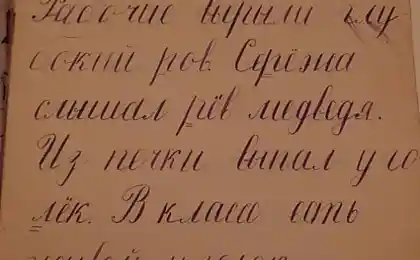 Рабочие вырыли глу
бокий ров. Серёжа
слышал рёв медведя.
Из печки выпал уго
лёк. В класса есть
живой уголок